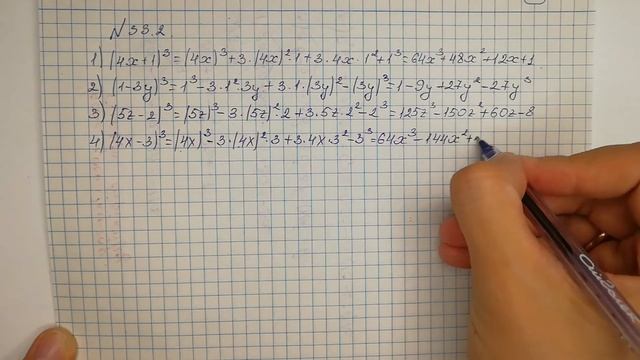 № 33.2
1) (4x+1)³=(4x)³+3·(4x)²·1+3·4x·1²+1³=64x³+48x²+12x+1
2) (1-3y)³=1³-3·1²·3y+3·1·(3y)²-(3y)³=1-9y+27y²-27y³
3) (5z-2)³=(5z)³-3·(5z)²·2+3·5z·2²-2³=125z³-150z²+60z-8
4) (4x-3)³=(4x)³-3·(4x)²·3+3·4x·3²-3³=64x³-144x²+